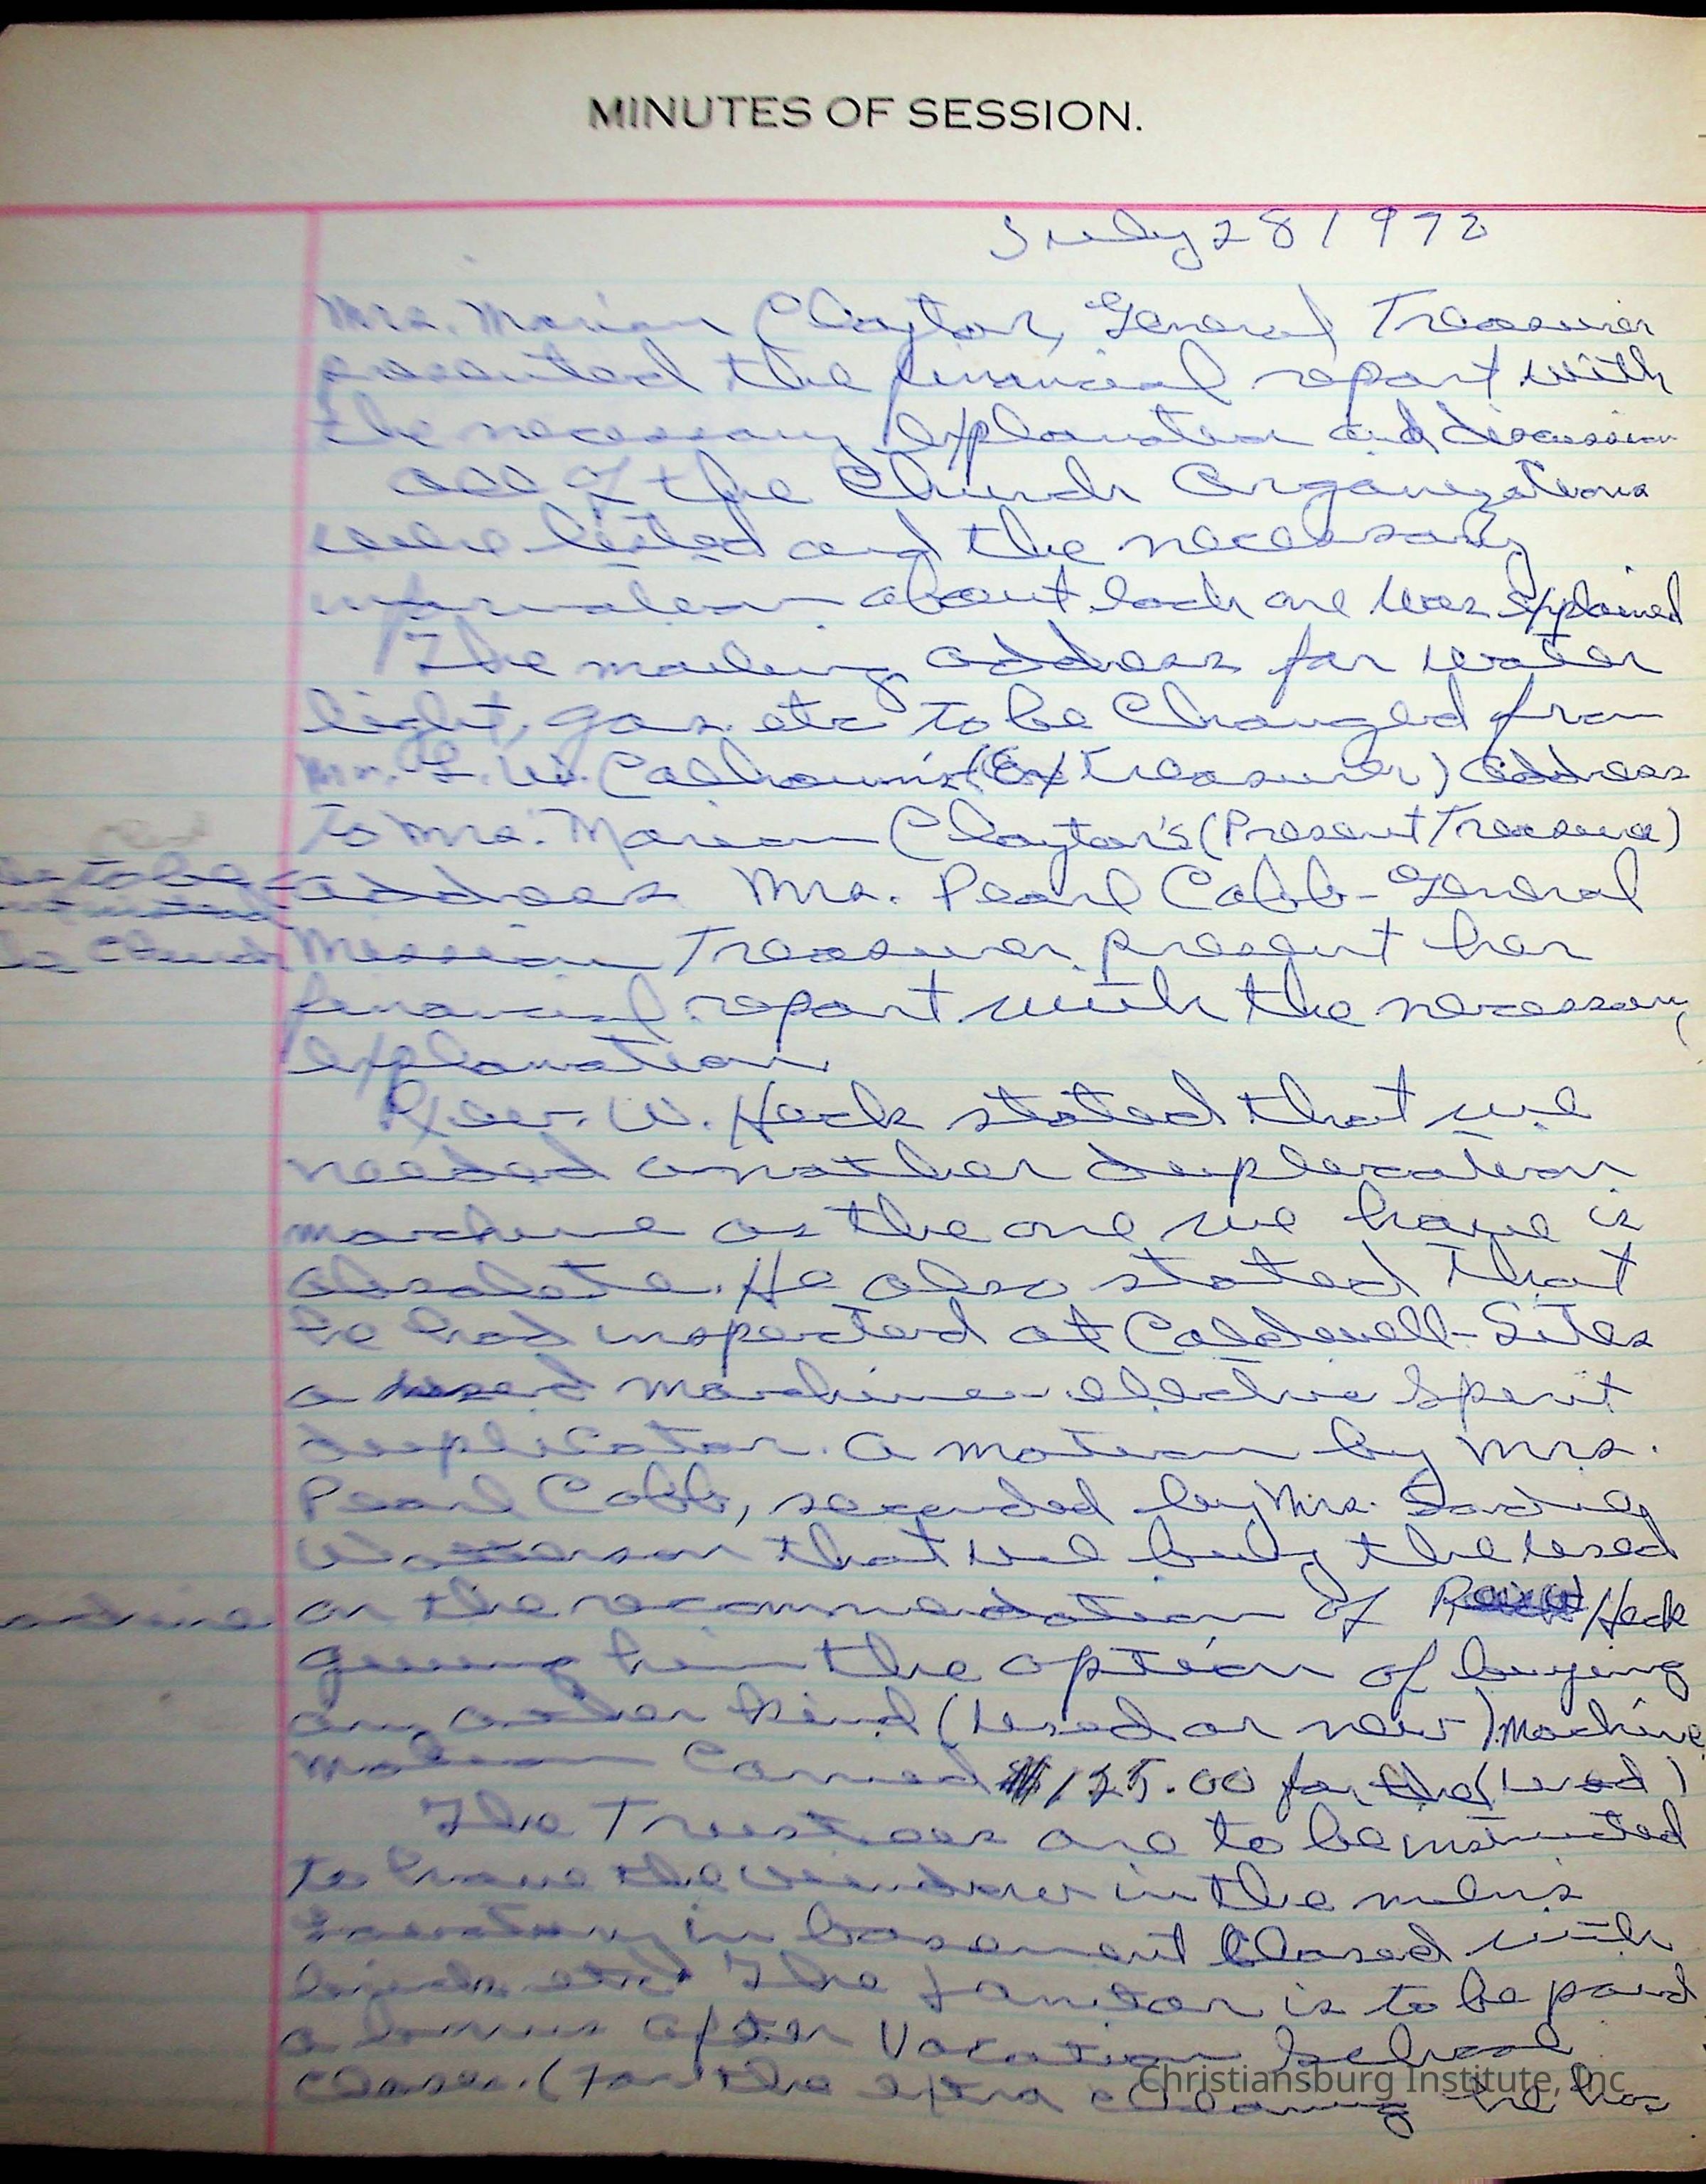 MINUTES OF SESSION.
July 28 1972
Mrs. Marian Clayton, General Treasurer
presented the financial report with
the necessary explanation and discussion
All of the Church Organizations
were listed and the necessary
information about each one was explained
The mailing address for water
light, gas. etc to be changed from
Mr. L. W. Calhoun's (Ex Treasurer) address
to Mrs. Marian Clayton's (Present Treasurer)
to be address Mrs. Pearl Cobb - General
Church Mission Treasurer present her
financial report with the necessary
explanation.
Rev. W. Heck stated that we
needed another duplication
machine as the one we have is
obsolete. He also stated that
he had inspected at Caldwell-Sites
a used machine - electric Spirit
duplicator. A motion by Mrs.
Pearl Cobb, seconded by Mrs. Sadie
Watterson that we buy the used
on the recommendation of Heck
giving him the option of buying
any other kind (used or new) machine
motion carried $125.00 for the (used)
The Trustees are to be instructed
to have the window in the men's
Lavatory in basement closed with
etc. The Janitor is to be paid
a bonus after Vacation School
closes. (For the extra cleaning he has
Christiansburg Institute, Inc